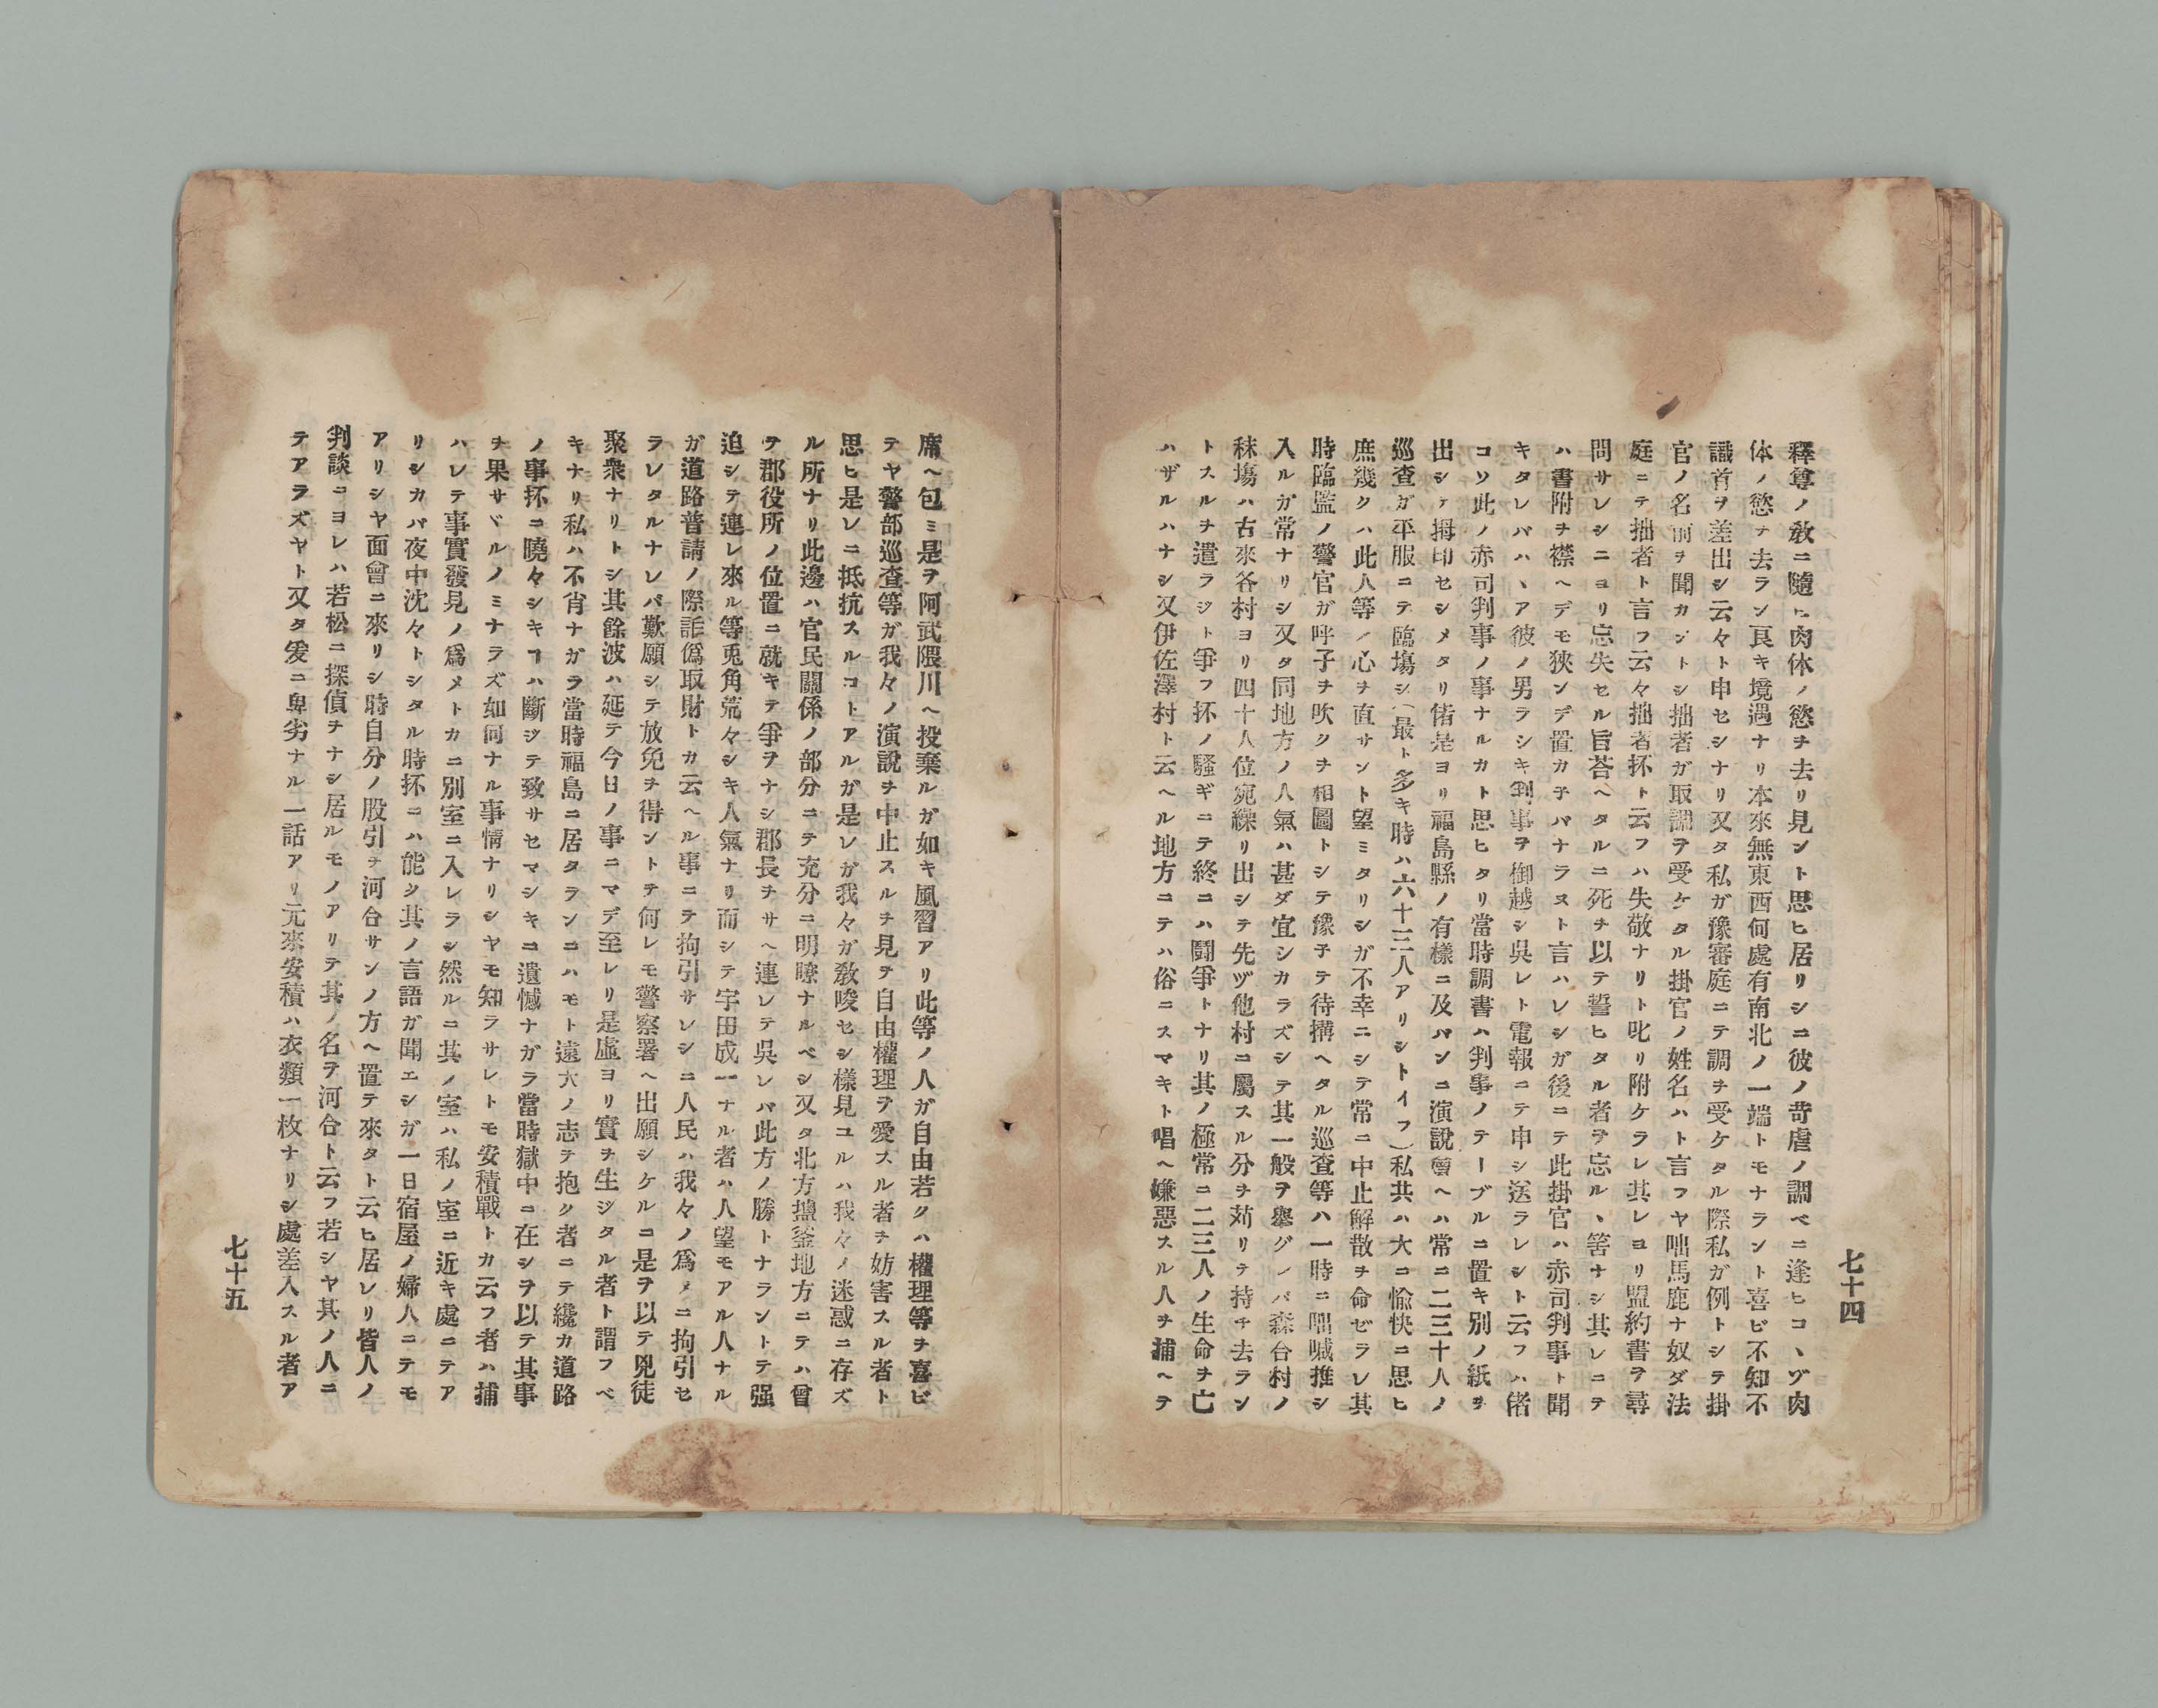 七十四
釋尊ノ敎ニ隨ヒ肉体ノ慾チ去リ見ント思ヒ居リシニ彼ノ苛虐ノ調ベニ逢ヒコヽゾ肉
体ノ慾チ去ラン良キ境遇ナリ本來無東西何處有南北ノ一端トモナラント喜ビ不知不
識首ヲ差出シ云々ト申セシナリ又タ私ガ豫審庭ニテ調チ受ケタル際私ガ例トシテ掛
官ノ名前ヲ聞カントシ拙者ガ取調ヲ受ケタル掛官ノ姓名ハト言フヤ咄馬鹿ナ奴ダ法
庭ニテ拙者ト言フ云々拙者抔ト云フハ失敬ナリト叱リ附ケラレ其レヨリ盟約書ヲ尋
問サレシニヨリ忘失セル旨荅ヘタルニ死チ以テ誓ヒタル者ヲ忘ルヽ筈ナシ其レニテ
ハ書附チ襟ヘデモ狹ンデ置カ子バナラヌト言ハレシガ後ニテ此掛官ハ赤司判事ト聞
キタレバハヽア彼ノ男ラシキ判事ヲ御越シ呉レト電報ニテ申シ送ラレシト云フハ偖
コソ此ノ赤司判事ノ事ナルカト思ヒタリ當時調書ハ判事ノテーブルニ置キ別ノ紙ヲ
出シテ拇印セシメタリ偖是ヨリ福島縣ノ有樣ニ及バンニ演說會ヘハ常ニ二三十人ノ
巡査ガ平服ニテ臨塲シ(最ト多キ時ハ六十三人アリシトイフ)私共ハ大ニ愉快ニ思ヒ
庶幾クハ此人等ノ心チ直サント望ミタリシガ不幸ニシテ常ニ中止解散チ命ゼラレ其
時臨監ノ警官ガ呼子チ吹クチ相圖トシテ豫子テ待搆ヘタル巡査等ハ一時ニ咄喊推シ
入ルガ常ナリシ又タ同地方ノ人氣ハ甚ダ宜シカラズシテ其一般ヲ擧グレバ森台村ノ
秣塲ハ古來各村ヨリ四十人位宛繰リ出シテ先ヅ他村ニ屬スル分チ苅リテ持チ去ラン
トスルチ遣ラジト爭フ抔ノ騷ギニテ終ニハ鬪爭トナリ其ノ極常ニ二三人ノ生命チ亡
ハザルハナシ又伊佐澤村ト云ヘル地方ニテハ俗ニスマキト唱ヘ嫌惡スル人チ捕ヘテ
席ヘ包ミ是ヲ阿武隈川ヘ投棄ルガ如キ風習アリ此等ノ人ガ自由若クハ權理等チ喜ビ
テヤ警部巡査等ガ我々ノ演說チ中止スルチ見テ自由權理ヲ愛スル者チ妨害スル者ト
思ヒ是レニ抵抗スルコトアルガ是レガ我々ガ敎唆セシ樣見ユルハ我々ノ迷惑ニ存ズ
ル所ナリ此邊ハ官民關係ノ部分ニテ充分ニ明瞭ナルベシ又タ北方塩釜地方ニテハ曾
テ郡役所ノ位置ニ就キテ爭ヲナシ郡長チサヘ連レテ呉レバ此方ノ勝トナラントテ强
迫シテ連レ來ル等兎角荒々シキ人氣ナリ而シテ宇田成一ナル者ハ人望モアル人ナル
ガ道路普請ノ際詐僞取財トカ云ヘル事ニテ拘引サレシニ人民ハ我々ノ爲メニ拘引セ
ラレタルナレバ歎願シテ放免チ得ントテ何レモ警察署ヘ出願シケルニ是ヲ以テ兇徒
聚衆ナリトシ其餘波ハ延テ今日ノ事ニマデ至レリ是虛ヨリ實チ生ジタル者ト謂フベ
キナリ私ハ不肖ナガラ當時福島ニ居タランニハモト遠大ノ志テ抱ク者ニテ纔カ道路
ノ事抔ニ曉々シキヿハ斷ジテ致サセマジキニ遺憾ナガラ當時獄中ニ在シヲ以テ其事
チ果サヾルノミナラズ如何ナル事情ナリシヤモ知ラサレトモ安積戰トカ云フ者ハ捕
ハレテ事實發見ノ爲メトカニ別室ニ入レラシ然ルニ其ノ室ハ私ノ室ニ近キ處ニテア
リシカバ夜中沈々トシタル時抔ニハ能ク其ノ言語ガ聞エシガ一日宿屋ノ婦人ニテモ
アリシヤ面會ニ來リシ時自分ノ股引チ河合サンノ方ヘ置テ來タト云ヒ居レリ皆人ノ
判談ニヨレハ若松ニ探偵チナシ居ルモノアリテ其ノ名ヲ河合ト云フ若シヤ其ノ人ニ
テアラズヤト又タ爰ニ卑劣ナル一話アリ元來安積ハ衣類一枚ナリシ處差入スル者ア
七十五